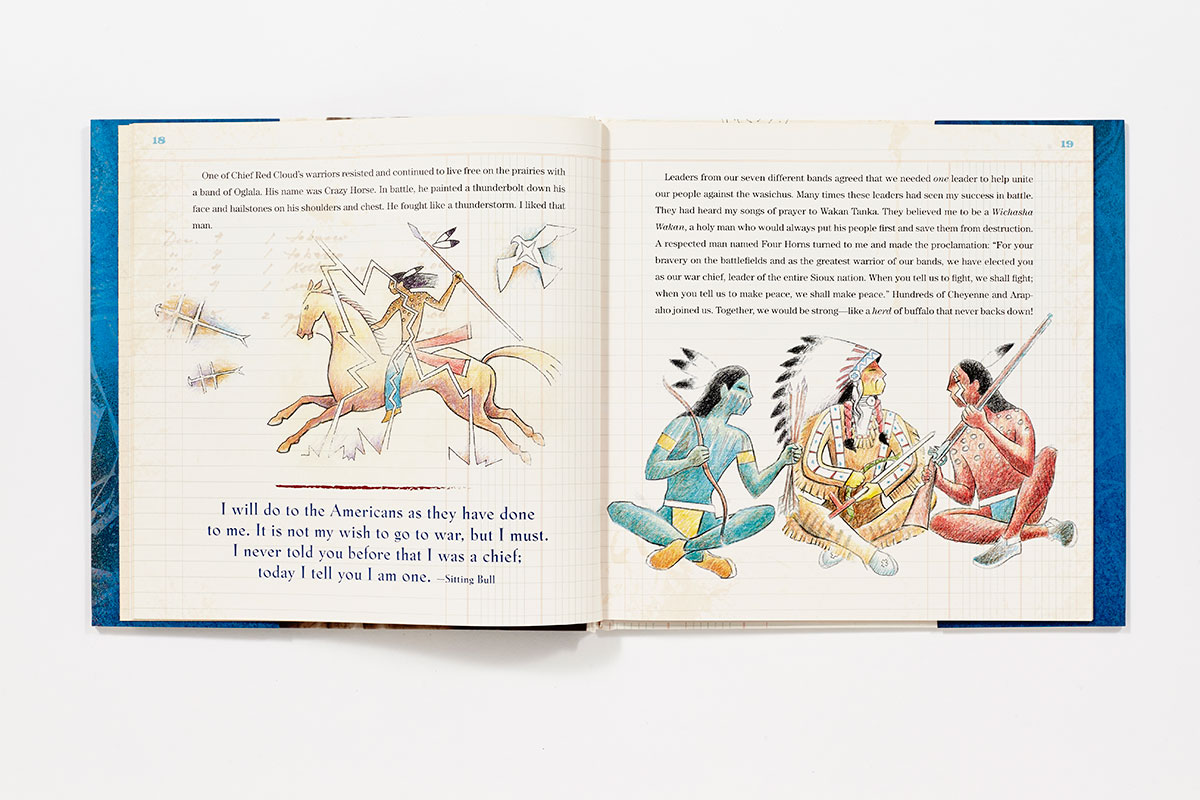 18
One of Chief Red Cloud's warriors resisted and continued to live free on the prairies with
a band of Oglala. His name was Crazy Horse. In battle, he painted a thunderbolt down his
face and hailstones on his shoulders and chest. He fought like a thunderstorm. I liked that
man.
I will do to the Americans as they have done
to me. It is not my wish to go to war, but I must.
I never told you before that I was a chief;
today I tell you I am one. —Sitting Bull
19
Leaders from our seven different bands agreed that we needed one leader to help unite
our people against the wasichus. Many times these leaders had seen my success in battle.
They had heard my songs of prayer to Wakan Tanka. They believed me to be a Wichasha
Wakan, a holy man who would always put his people first and save them from destruction.
A respected man named Four Horns turned to me and made the proclamation: “For your
bravery on the battlefields and as the greatest warrior of our bands, we have elected you
as our war chief, leader of the entire Sioux nation. When you tell us to fight, we shall fight;
when you tell us to make peace, we shall make peace.” Hundreds of Cheyenne and Arap-
aho joined us. Together, we would be strong—like a herd of buffalo that never backs down!